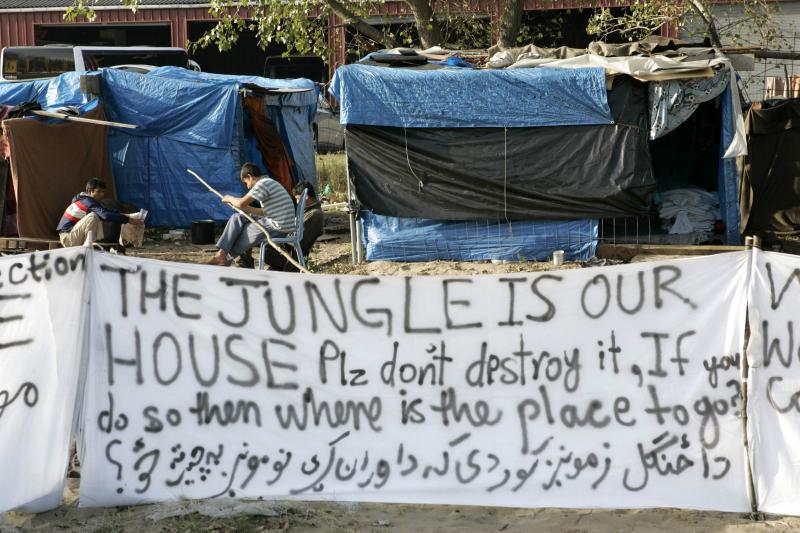 ection
THE JUNGLE IS OUR
HOUSE Plz don't destroy it, If you
do so then where is the place to go?
دا ځنګل زمونږ کور دی که دا وران کړی نو مونږ به چیرته ځو؟
go